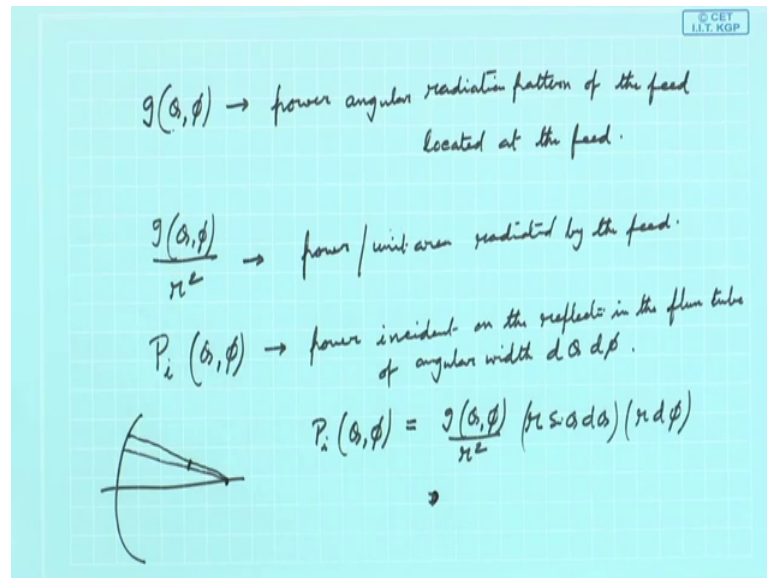 © CET
I.I.T. KGP
g(θ,ϕ) → power angular radiation pattern of the feed
located at the feed.
g(θ,ϕ)/r² → power/unit area radiated by the feed.
P_i (θ,ϕ) → power incident on the reflector in the flux tube
of angular width dθ dϕ.
P_i (θ,ϕ) = g(θ,ϕ)/r² (r sin θ dθ)(r dϕ)